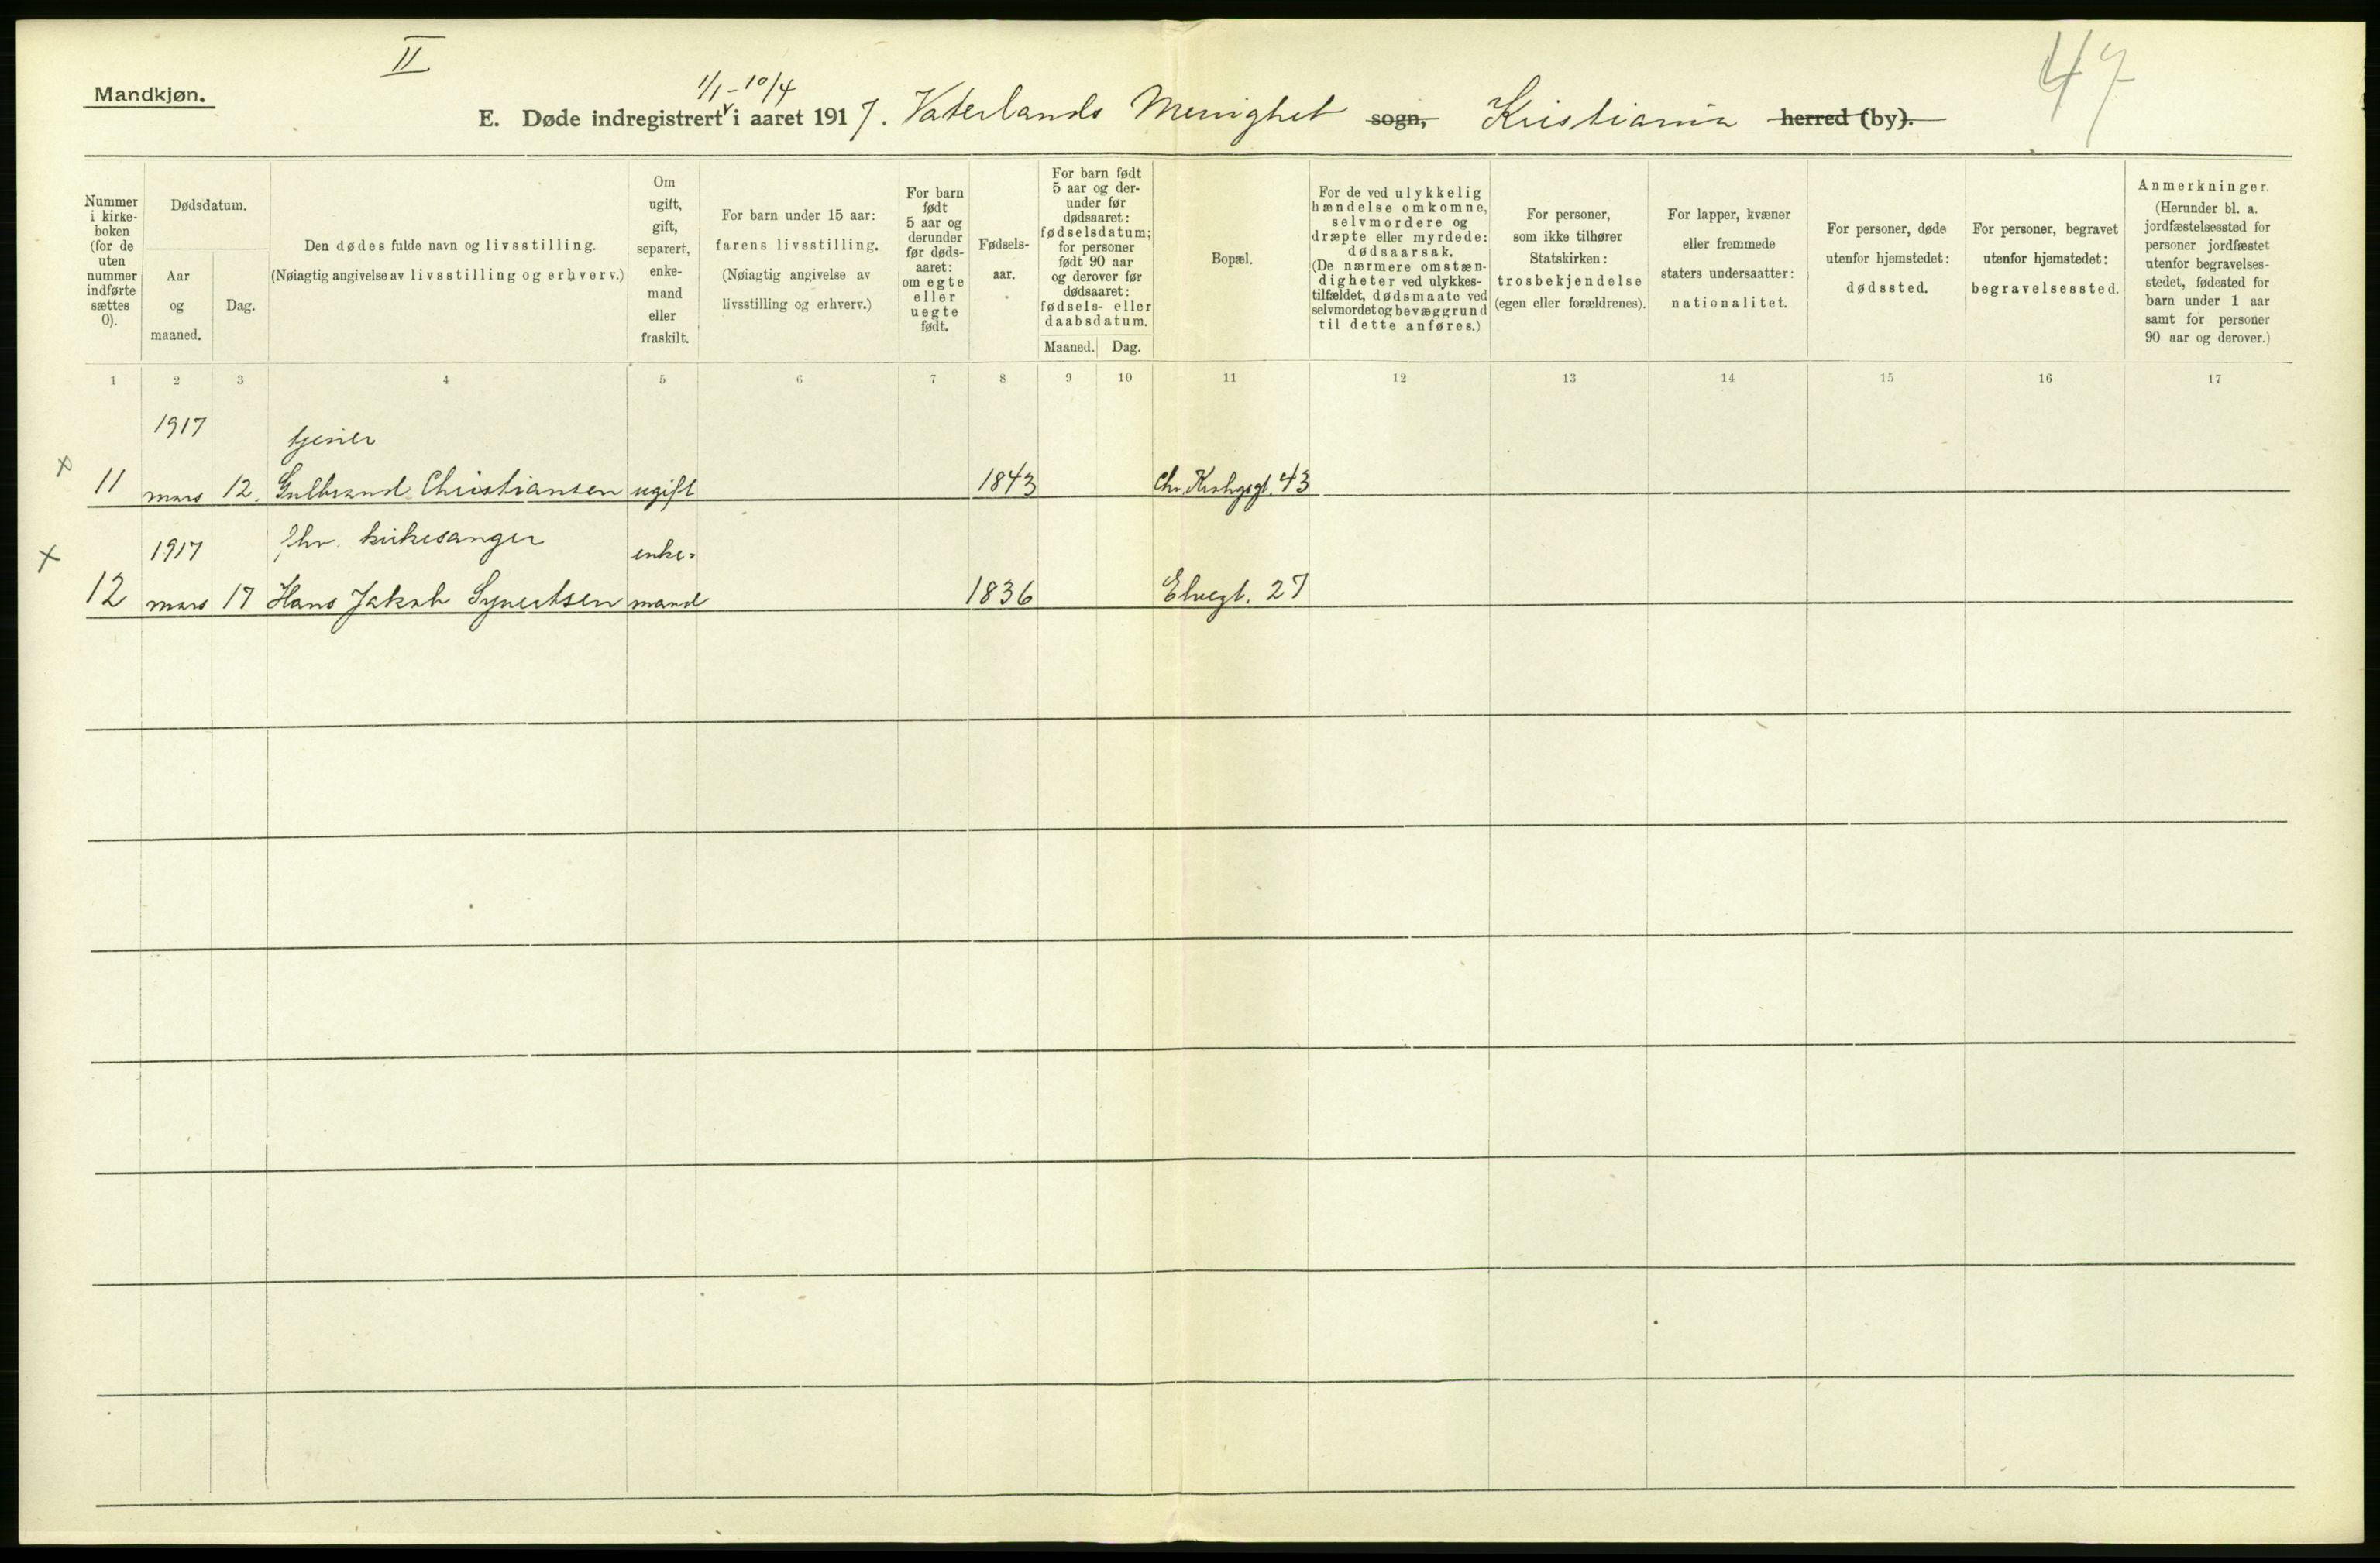 II
47
Mandkjøn.
1/1 - 10/4
E. Døde indregistrert i aaret 1917. Vaterlands Menighet sogn, Kristiania herred (by).
Nummer i kirke-boken (for de uten nummer indførte sættes 0).
Dødsdatum.
Aar og maaned.
Dag.
Den dødes fulde navn og livsstilling.
(Nøiagtig angivelse av livsstilling og erhverv.)
Om ugift, gift, separert, enke-mand eller fraskilt.
For barn under 15 aar: farens livsstilling.
(Nøiagtig angivelse av livsstilling og erhverv.)
For barn født 5 aar og derunder før døds-aaret: om egte eller uegte født.
Fødsels-aar.
For barn født 5 aar og der-under før dødsaaret: fødselsdatum; for personer født 90 aar og derover før dødsaaret: fødsels- eller daabsdatum.
Maaned. Dag.
Bopæl.
For de ved ulykkelig hændelse omkomne, selvmordere og dræpte eller myrdede: dødsaarsak.
(De nærmere omstæn-digheter ved ulykkes-tilfældet, dødsmaate ved selvmordet og bevæggrund til dette anføres.)
For personer, som ikke tilhører Statskirken: trosbekjendelse (egen eller forældrenes).
For lapper, kvæner eller fremmede staters undersaatter: nationalitet.
For personer, døde utenfor hjemstedet: dødssted.
For personer, begravet utenfor hjemstedet: begravelsessted.
Anmerkninger.
(Herunder bl. a. jordfæstelsessted for personer jordfæstet utenfor begravelses-stedet, fødested for barn under 1 aar samt for personer 90 aar og derover.)
1 2 3 4 5 6 7 8 9 10 11 12 13 14 15 16 17
1917 tjener
x 11 mars 12. Gulbrand Christiansen ugift 1843 Chr. Krohgsgt. 43
x 1917 fhv. kirkesanger enke-
12 mars 17 Hans Jakob Syvertsen mand 1836 Elvegt. 27